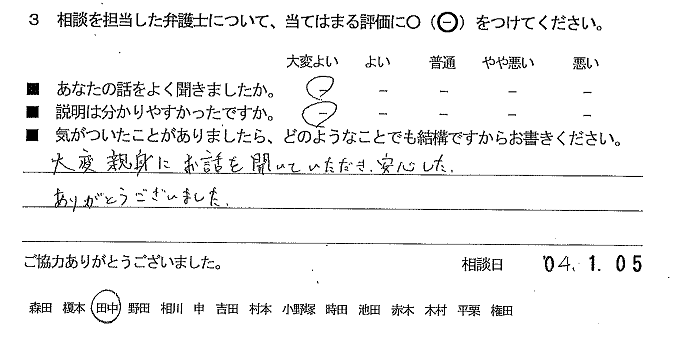 3 相談を担当した弁護士について、当てはまる評価に○（⊖）をつけてください。
大変よい よい 普通 やや悪い 悪い
■ あなたの話をよく聞きましたか。 － － － － －
■ 説明は分かりやすかったですか。 － － － － －
■ 気がついたことがありましたら、どのようなことでも結構ですからお書きください。
大変親身にお話を聞いていただき、安心した。
ありがとうございました。
ご協力ありがとうございました。 相談日 '04. 1. 05
森田 榎本 田中 野田 相川 申 吉田 村本 小野塚 時田 池田 赤木 木村 平栗 権田